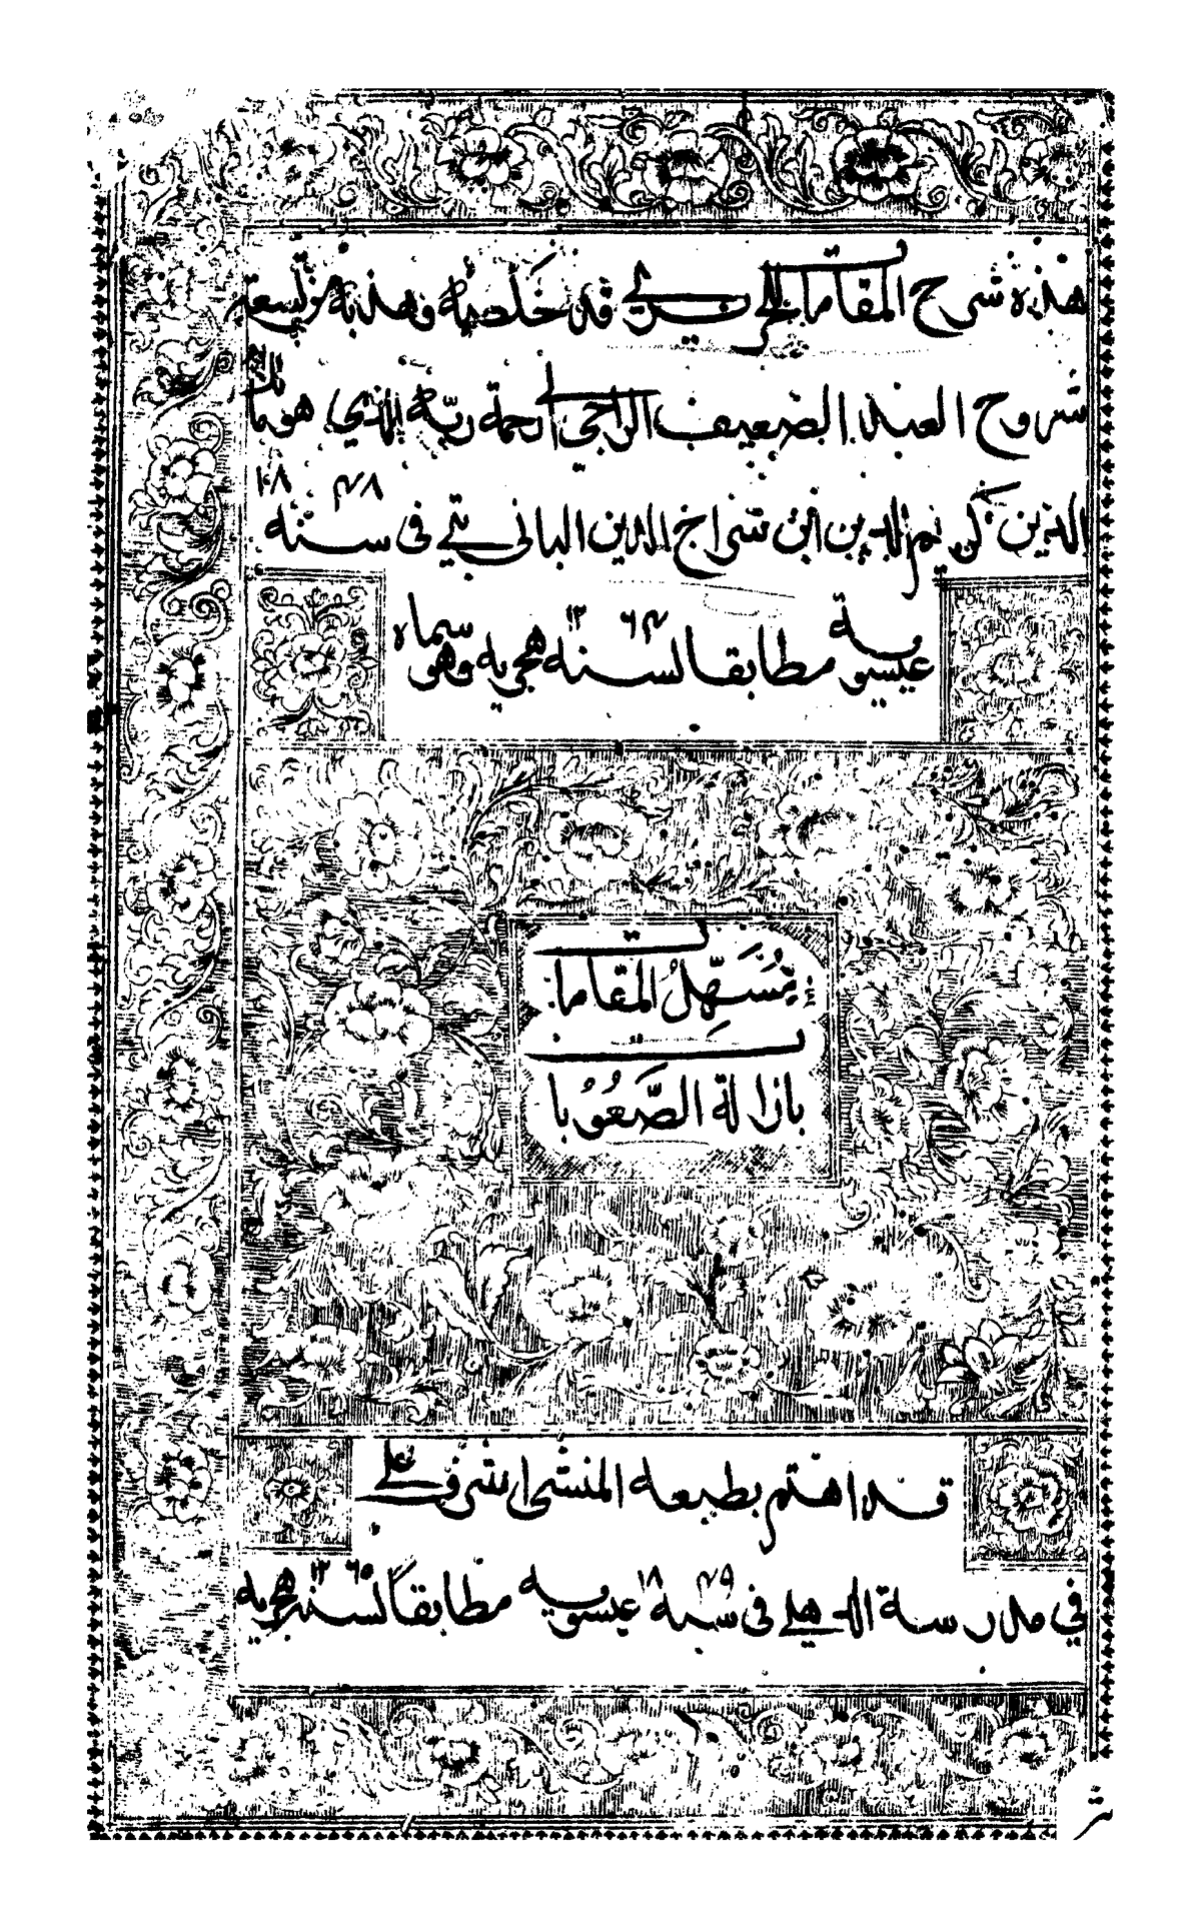 هذه شرح المقامات الحريري قد خلصه وهذبه من تسعة
شروح العبد الضعيف الراجي لرحمة ربه الذي هو مالك
الدين كريم الدين ابن سراج الدين الباني پتي فى سنه ١٨٤٨
عيسويه مطابقا لسنه ١٢٦٤ هجريه وهو سماه
بمسهل المقامات
بازالة الصعوبات
قد اهتم بطبعه المنشى اشرف علي
في مدرسة الدهلي فى سنه ١٨٤٩ عيسويه مطابقاً لسنه ١٢٦٥ هجريه